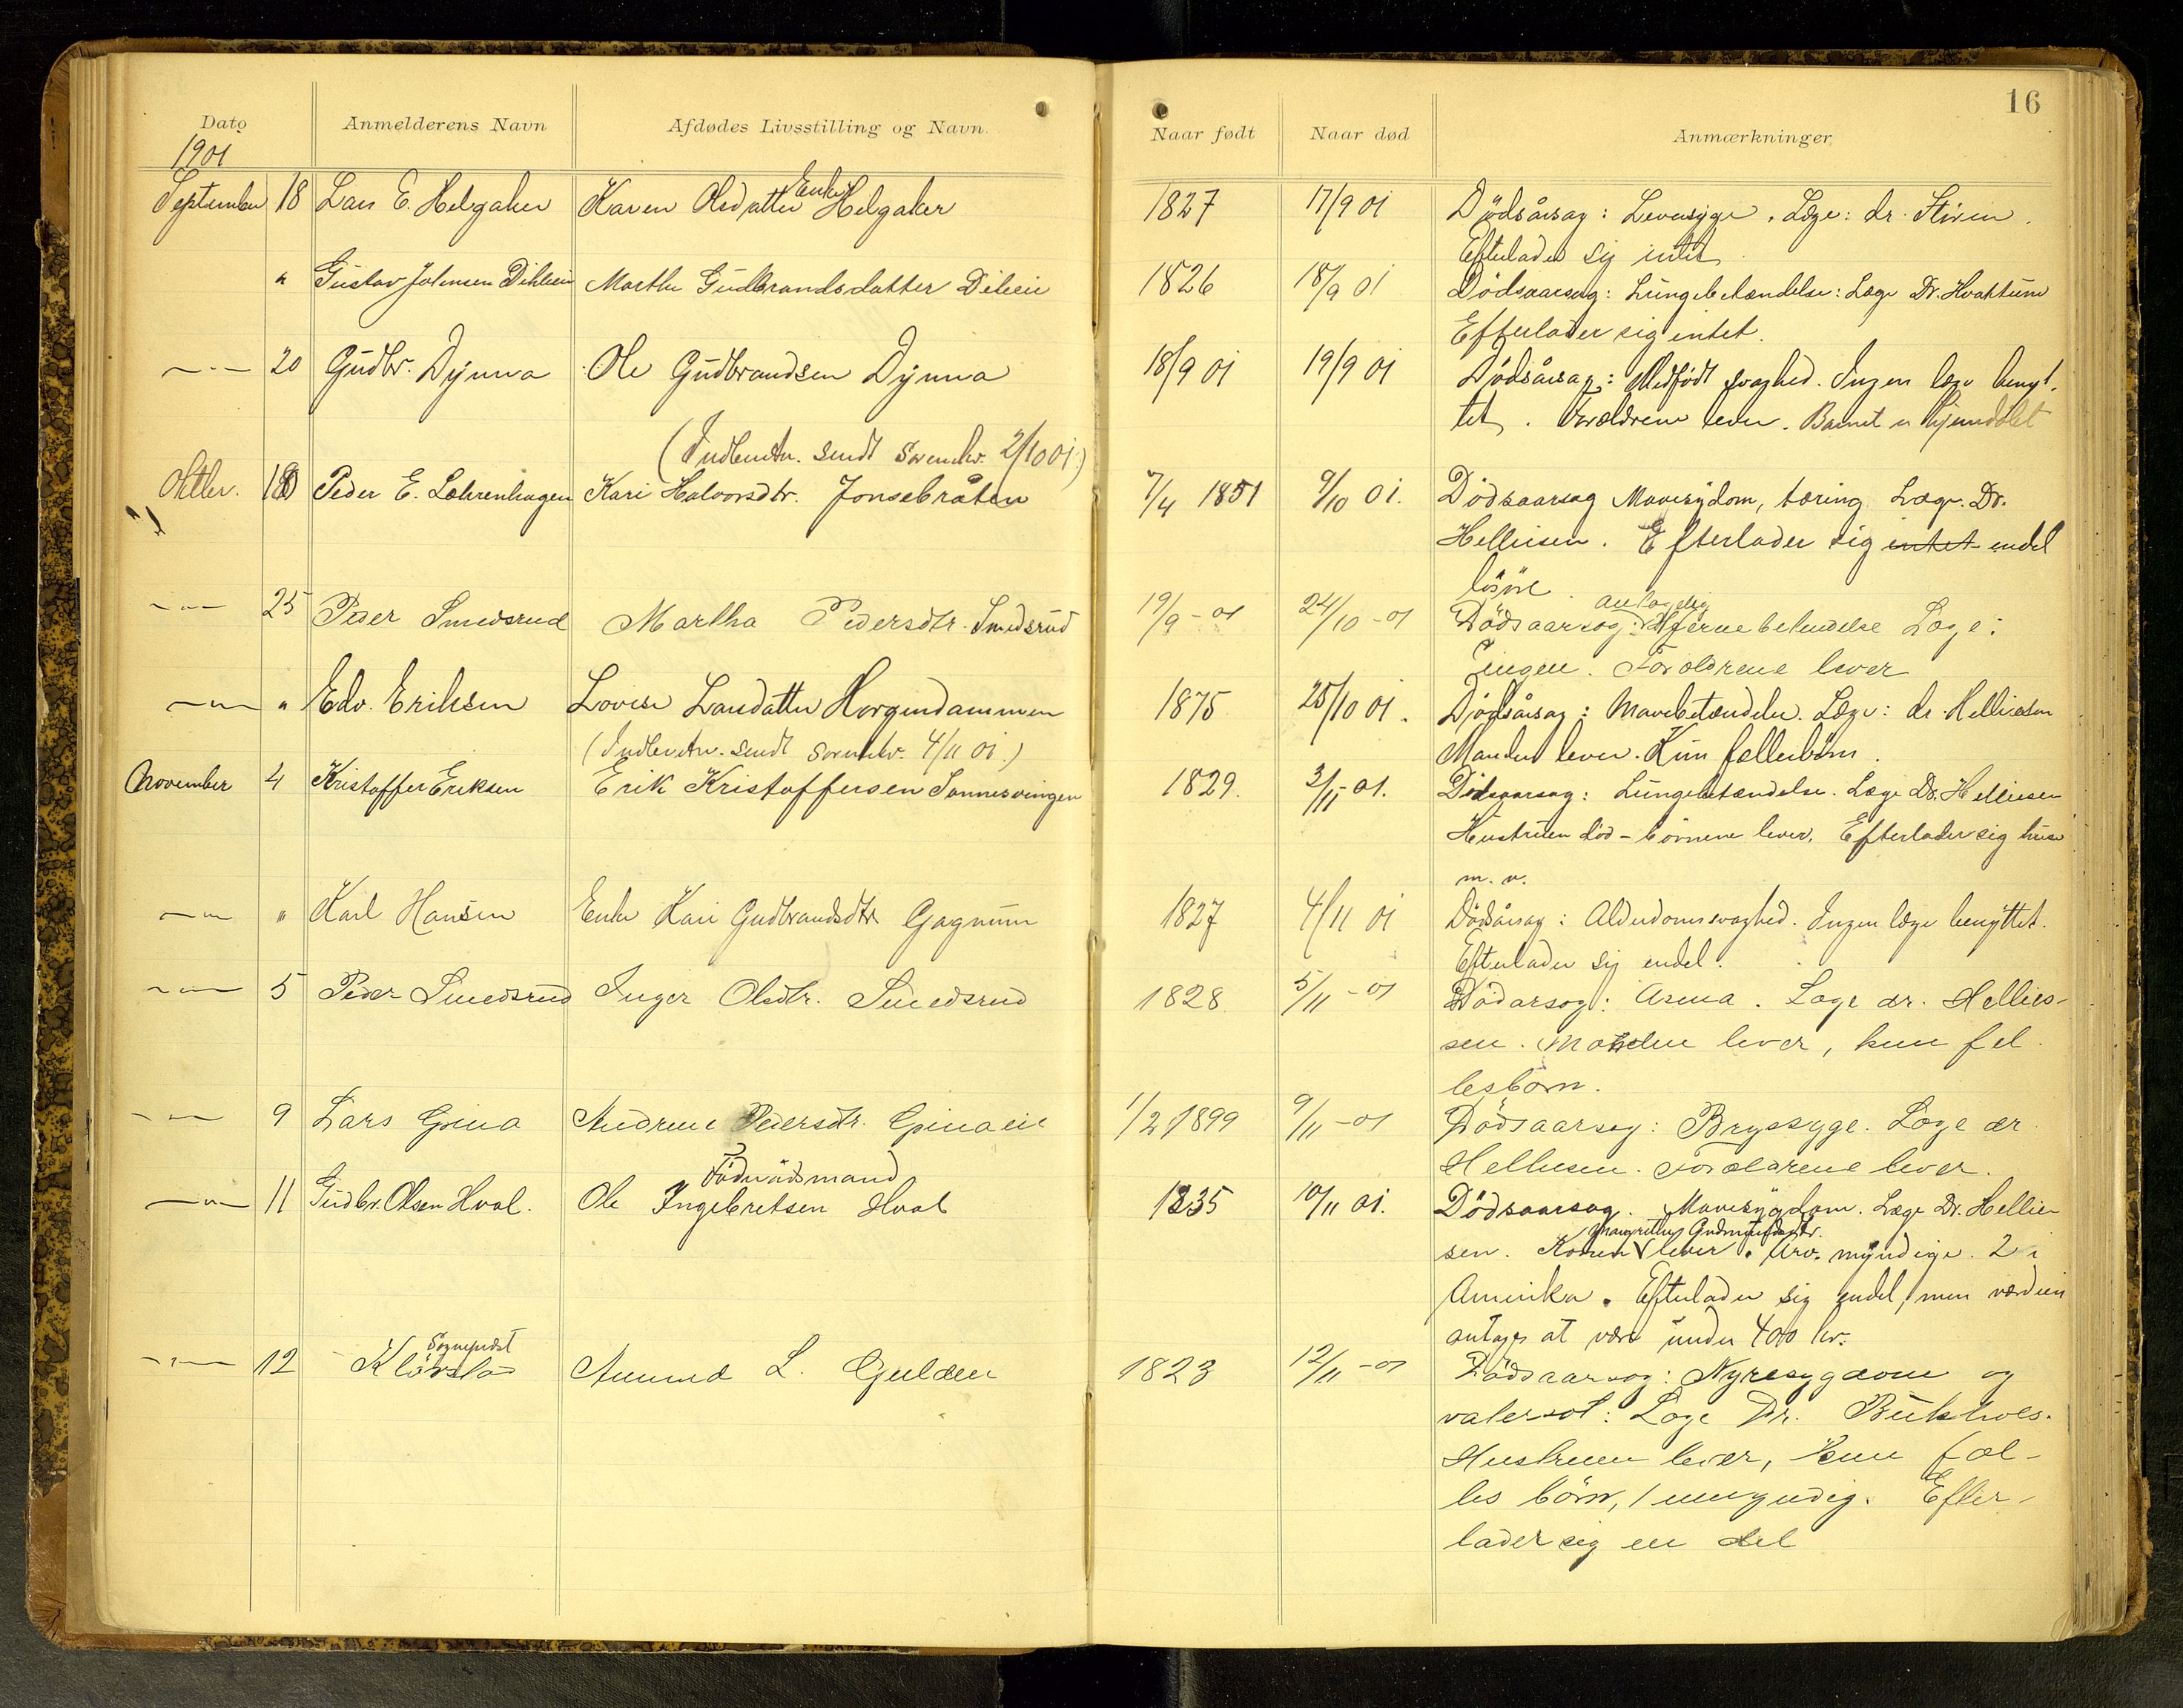 16
Dato Anmelderens Navn Afdødes Livsstilling og Navn. Naar født Naar død Anmærkninger.
1901
September 18 Lars E. Helgaker Karen Olsdatter Enke Helgaker 1827 17/9 01 Dødsårsag: Leversyge. Læge: dr. Stixrun.
Efterlader sig intet
" Gustav Johnsen Dihleeie Marthe Gudbrandsdatter Diheeie 1826 18/9 01 Dødsaarsag: Lungebetændelse: Læge Dr. Hvattum
Efterlader sig intet.
—"— 20 Gudbr. Dynna Ole Gudbrandsen Dynna 18/9 01 19/9 01 Dødsårsag: Medfødt svaghed. Ingen læge benyt-
tet. Forældrene lever. Barnet er hjemdøbt
(Indberetn. sendt sorenskr. 2/10 01)
Oktbr. 10 Peder E. Løkrenhagen Kari Halvorsdtr. Jonsebråten 7/4 1851 9/10 01. Dødsaarsag Mavesydom, tæring Læge. Dr.
Helliesen. Efterlader sig intet endel
løsøre.
—"— 25 Peder Smedsrud Martha Pedersdtr. Smedsrud 19/9-01 24/10-01 Dødsaarsag: antagelig Hjernebetendelse Læge:
Jingen. Foroldrene lever
—"— " Edv. Eriksen Lovise Larsdatter Horgendammen 1875 25/10 01. Dødsårsag: Mavebetændelse. Læge: dr. Helliesen
Manden lever. Kun fællesbørn.
(Indberetn. sendt sorenskr. 4/11 01.)
November 4 Kristoffer Eriksen Erik Kristoffersen Sønnesvingen 1829. 3/11-01. Dødsaarsag: Lungebetændelse. Læge Dr. Helliesen
Hustruen død - børnene lever. Efterlader sig huse
m. v.
—"— " Karl Hansen Enke Kari Gudbrandsdtr. Gagnum 1827 4/11 01 Dødsårsag: Alderdomssvaghed. Ingen læge benyttet.
Efterlader sig endel.
—"— 5 Peder Smedsrud Inger Olsdtr. Smedsrud 1828 5/11-01 Dødarsog: Asma. Loge dr. Hellies-
sen. Manden lever, kun fel-
lesbørn.
—"— 9 Lars Grina Andrine Pedersdtr. Grinaeie 1/2 1899 9/11-01 Dødsaarsag: Brystsyge. Loge dr
Helliesen. Forældrene lever.
—"— 11 Gudbr. Olsen Hval. Fødraadsmand Ole Ingebretsen Hval 1835 10/11 01. Dødsaarsag. Mavesygdom. Læge Dr. Hellie
sen. Konen Margrethe Gudmundsdtr. lever. Arv. myndige. 2 i
Amerika. Efterlader sig endel, men værdien
antages at være under 400 kr.
—"— 12 Sogneprest Kløvstad Amund L. Gulden 1823 12/11-01 Dødsaarsag: Nyresygdom og
vatersot: Læge Dr. Bükholes.
Hustruen lever, kun fæl-
les børn, 1 umyndig. Efter-
lader sig en del